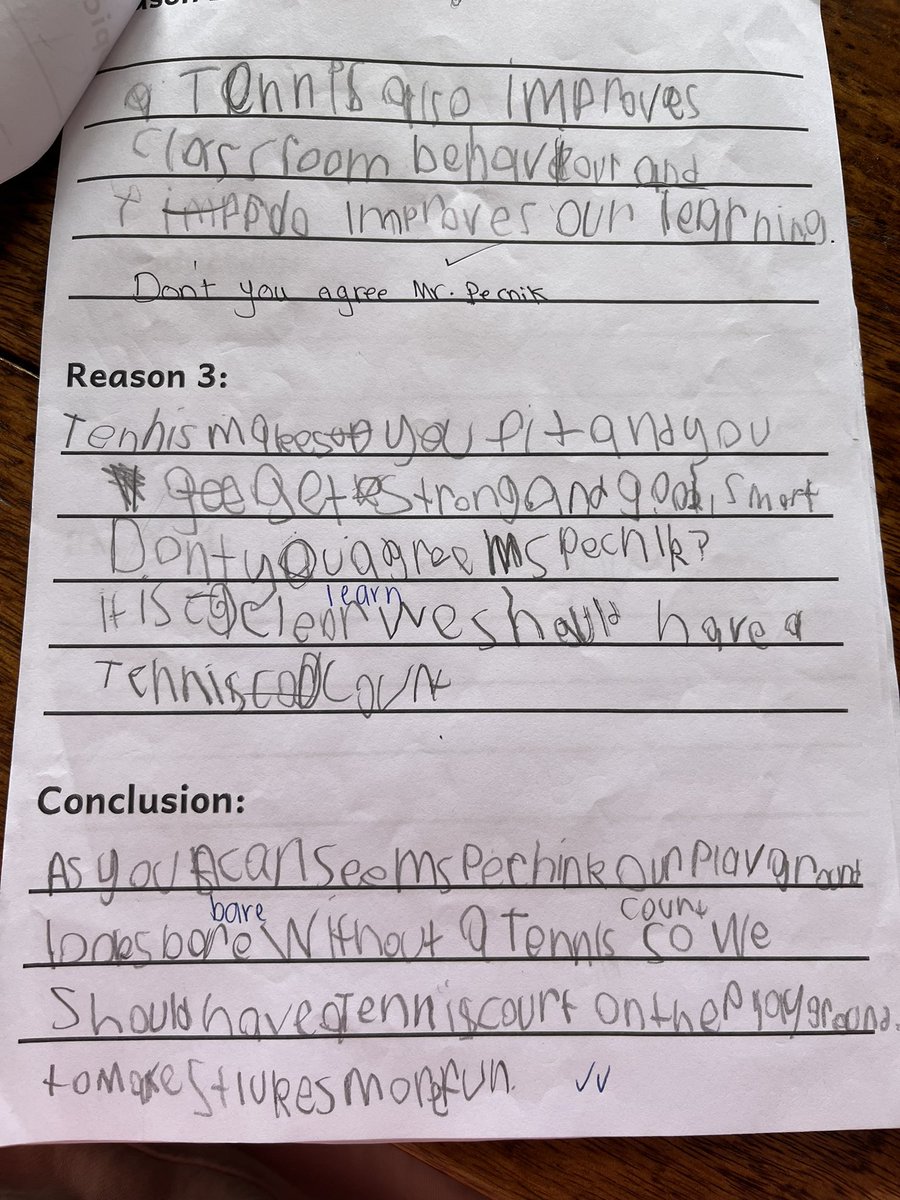 Tennis also improves
classroom behaviour and
improves our learning.
Don't you agree Mr. Pecnik
Reason 3:
Tennis makes you fit and you
get strong and good, smart
Dont you agree Ms Pechik?
learn
It is clear We should have a
Tennis court
Conclusion:
As you can see ms Pechink our playground
bare
court
looks bare Without a Tennis so We
Should have a Tennis court on the Playground.
to make more fun.